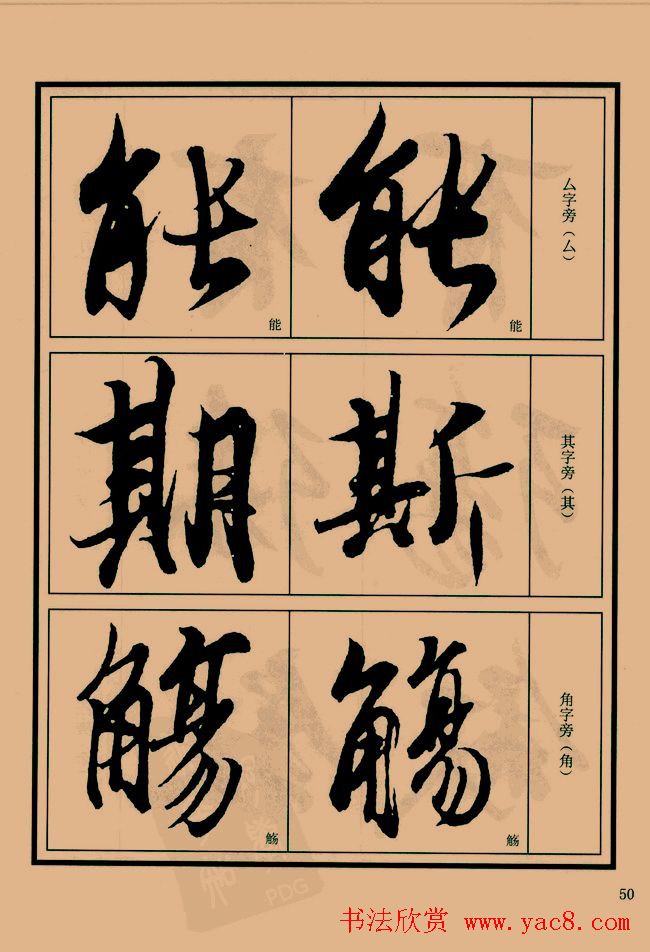 厶字旁（厶）
能
能
能
能
其字旁（其）
斯
期
角字旁（角）
觴
觞
觴
觞
50
书法欣赏 www.yac8.com
PDG